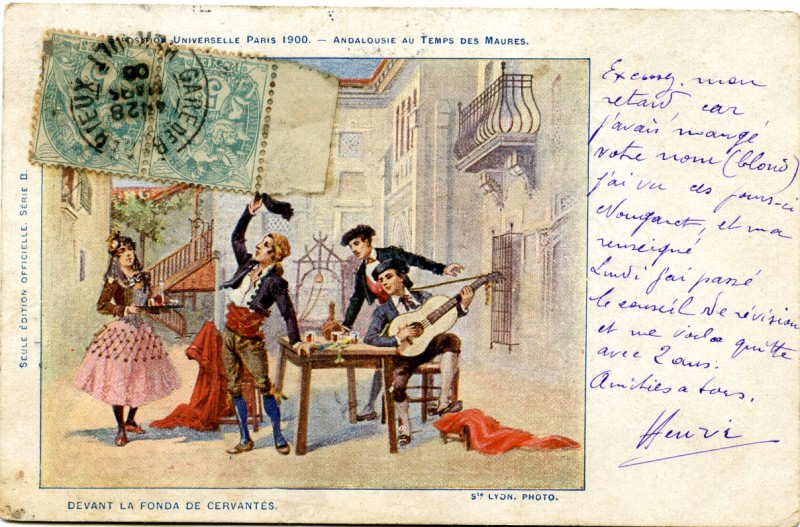 Universelle Paris 1900. — Andalousie au Temps des Maures.
GARE DE
28
MARS
05
Seule Édition Officielle. Série B.
Excusez mon
retard car
j'avais mangé
votre nom (blond)
j'ai vu ces jours-ci
Nougaret, et m'a
renseigné
Lundi j'ai passé
le conseil de révision
et me voilà quitte
avec 2 ans.
Amitiés a tous.
Henri
Sté LYON. PHOTO.
DEVANT LA FONDA DE CERVANTÈS.